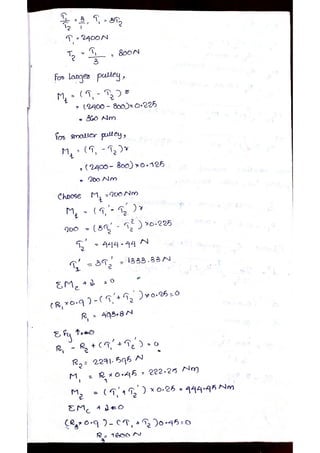 T₁/T₂ = 3/1, T₁ = 3T₂
T₁ = 2400N
T₂ = T₁/3 = 800N
For larger pulley,
M_t = (T₁ - T₂) r
= (2400 - 800) × 0.225
= 360 Nm
For smaller pulley,
M_t = (T₁ - T₂) r
= (2400 - 800) × 0.125
= 200 Nm
Choose M_t = 200 Nm
M_t = (T₁' - T₂') r
200 = (3T₂' - T₂') × 0.225
T₂' = 444.44 N
T₁' = 3T₂' = 1333.33 N
ΣM_c = 0
(R₁ × 0.9) - (T₁' + T₂') × 0.25 = 0
R₁ = 493.8 N
ΣFy = 0
R₁ - R₂ + (T₁' + T₂') = 0
R₂ = 2271.595 N
M₁ = R₁ × 0.45 = 222.25 Nm
M₂ = (T₁' + T₂') × 0.25 = 444.45 Nm
ΣM_c = 0
(R₃ × 0.9) - (T₁ + T₂) 0.45 = 0
R₃ = 1600 N